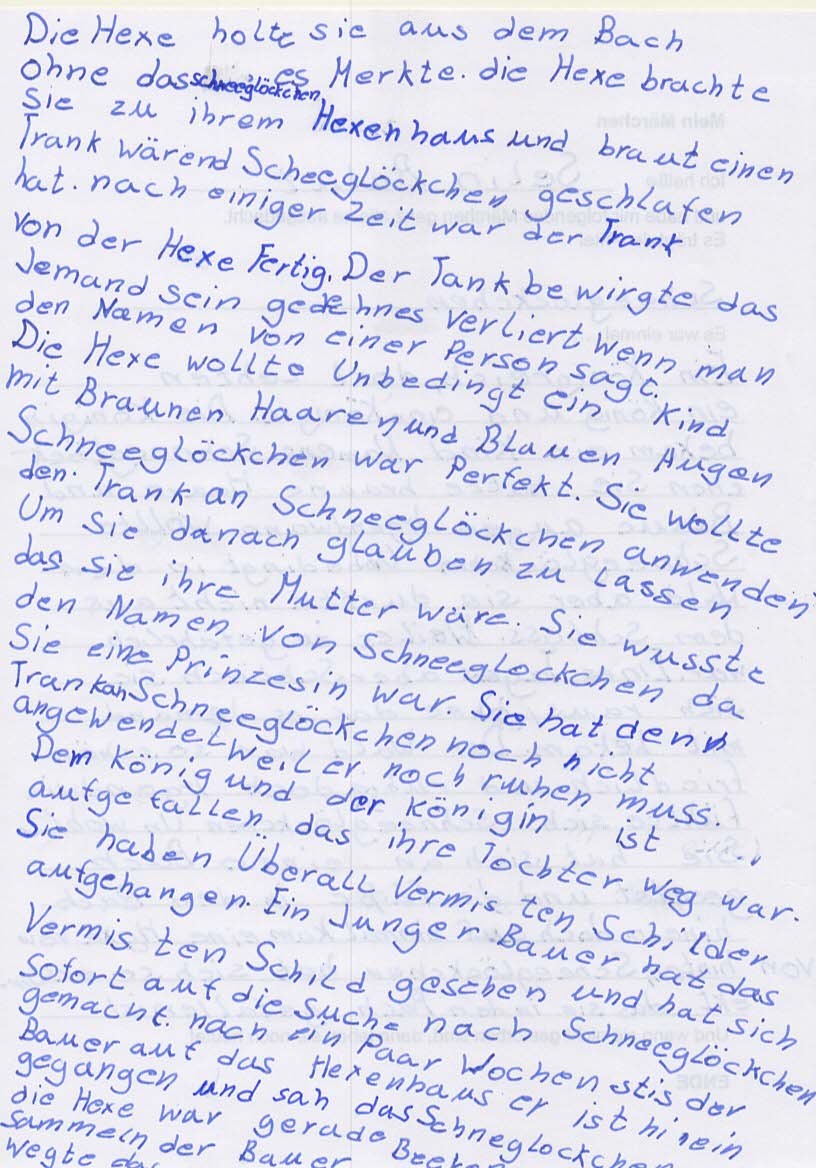 Die Hexe holte sie aus dem Bach
ohne das schneeglöckchen es Merkte. die Hexe brachte
Sie zu ihrem Hexenhaus und braut einen
Trank wärend Scheeglöckchen geschlafen
hat. nach einiger Zeit war der Trank
von der Hexe Fertig. Der Tank bewirgte das
Jemand sein gedehnes verliert wenn man
den Namen von einer Person sagt.
Die Hexe wollte Unbedingt ein Kind
mit Braunen Haaren und Blauen Augen
Schneeglöckchen war Perfekt. Sie wollte
den Trank an Schneeglöckchen anwenden
Um sie danach glauben zu lassen
das sie ihre Mutter wäre. Sie wusste
den Namen von Schneeglockchen da
Sie eine Prinzesin war. Sie hat denn
Trank an Schneeglöckchen noch nicht
angewendet weil er noch ruhen muss.
Dem König und der königin ist
aufgefallen das ihre Tochter weg war.
Sie haben Überall Vermisten Schilder
aufgehangen. Ein Junger Bauer hat das
Vermisten Schild gesehen und hat sich
Sofort auf die Suche nach Schneeglöckchen
gemacht. nach ein Paar Wochen stis der
Bauer auf das Hexenhaus er ist hinein
gegangen und sah das Schneglockchen
die Hexe war gerade Beeren
sammeln der Bauer
wegte das